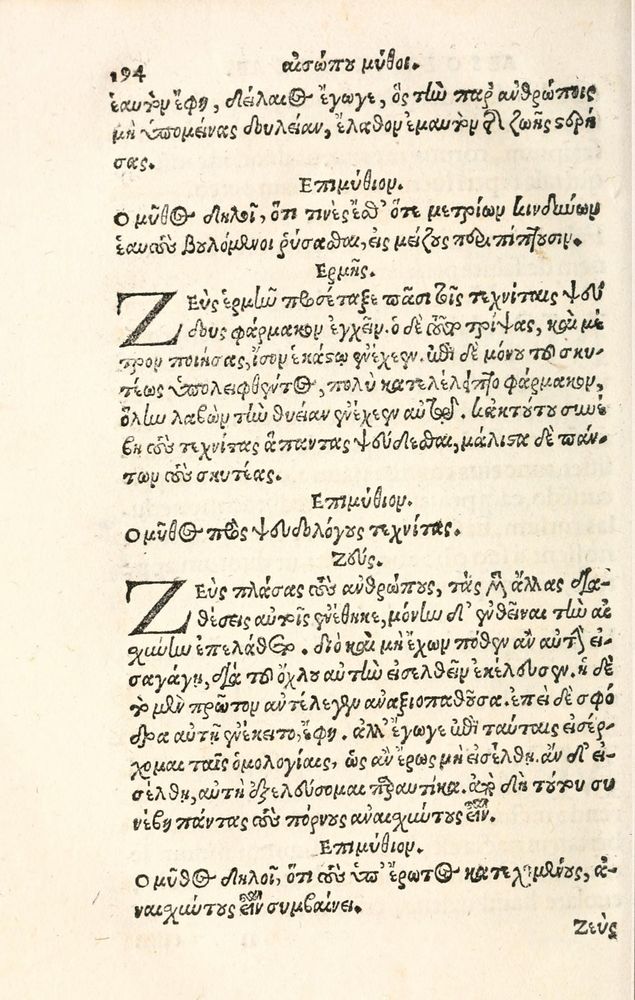 194 αισώπου μύθοι.
ἑαυτὸν ἔφη, δείλαιος ἔγωγε, ὃς τὴν παρ' ἀνθρώποις
μὴ ὑπομείνας δουλείαν, ἔλαθον ἐμαυτὸν τῆς ζωῆς στερή
σας.
Επιμύθιον.
Ο μῦθος δηλοῖ, ὅτι τινὲς ἔσθ' ὅτε μετρίων κινδύνων
ἑαυτοὺς βουλόμενοι ῥύσασθαι, εἰς μείζους περιπίπτουσιν.
Ερμῆς.
ΖΕὺς ἑρμῆν προσέταξε πᾶσι τοῖς τεχνίταις ψεύ
δους φάρμακον ἐγχεῖν. ὁ δὲ τοῦτο τρίψας, καὶ μέ
τρον ποιήσας, ἴσον ἑκάστῳ ἐνέχεεν. ἐπεὶ δὲ μόνου τοῦ σκυ-
τέως ὑπολειφθέντος, πολὺ κατελέλειπτο φάρμακον,
ὅλην λαβὼν τὴν θυείαν ἐνέχεεν αὐτῷ. κἀκ τούτου συνέ
βη τοὺς τεχνίτας ἅπαντας ψεύδεσθαι, μάλιστα δὲ πάν-
των τοὺς σκυτέας.
Επιμύθιον.
Ο μῦθος πρὸς ψευδολόγους τεχνίτας.
Ζεύς.
ΖΕὺς πλάσας τοὺς ἀνθρώπους, τὰς μὲν ἄλλας δια-
θέσεις αὐτοῖς ἐνέθηκε, μόνην δ' ἐνθεῖναι τὴν αἰ
σχύνην ἐπελάθετο. διὸ καὶ μὴ ἔχων πόθεν ἂν αὐτὴν εἰ-
σαγάγῃ, διὰ τοῦ ὄχλου αὐτὴν εἰσελθεῖν ἐκέλευσεν. ἡ δὲ
τὸ μὲν πρῶτον ἀντέλεγεν ἀναξιοπαθοῦσα. ἐπεὶ δὲ σφό
δρα αὐτῇ ἐνέκειτο, ἔφη. ἀλλ' ἔγωγε ἐπὶ ταύταις εἰσέρ-
χομαι ταῖς ὁμολογίαις, ὡς ἂν ἔρως μὴ εἰσέλθῃ. ἂν δ' εἰ-
σέλθῃ, αὐτὴ ἐξελεύσομαι παραυτίκα. ἀπὸ δὴ τούτου συ
νέβη πάντας τοὺς πόρνους ἀναισχύντους εἶναι.
Επιμύθιον.
Ο μῦθος δηλοῖ, ὅτι τοὺς ὑπ' ἔρωτος κατεχομένους, ἀ-
ναισχύντους εἶναι συμβαίνει.
Ζεὺς